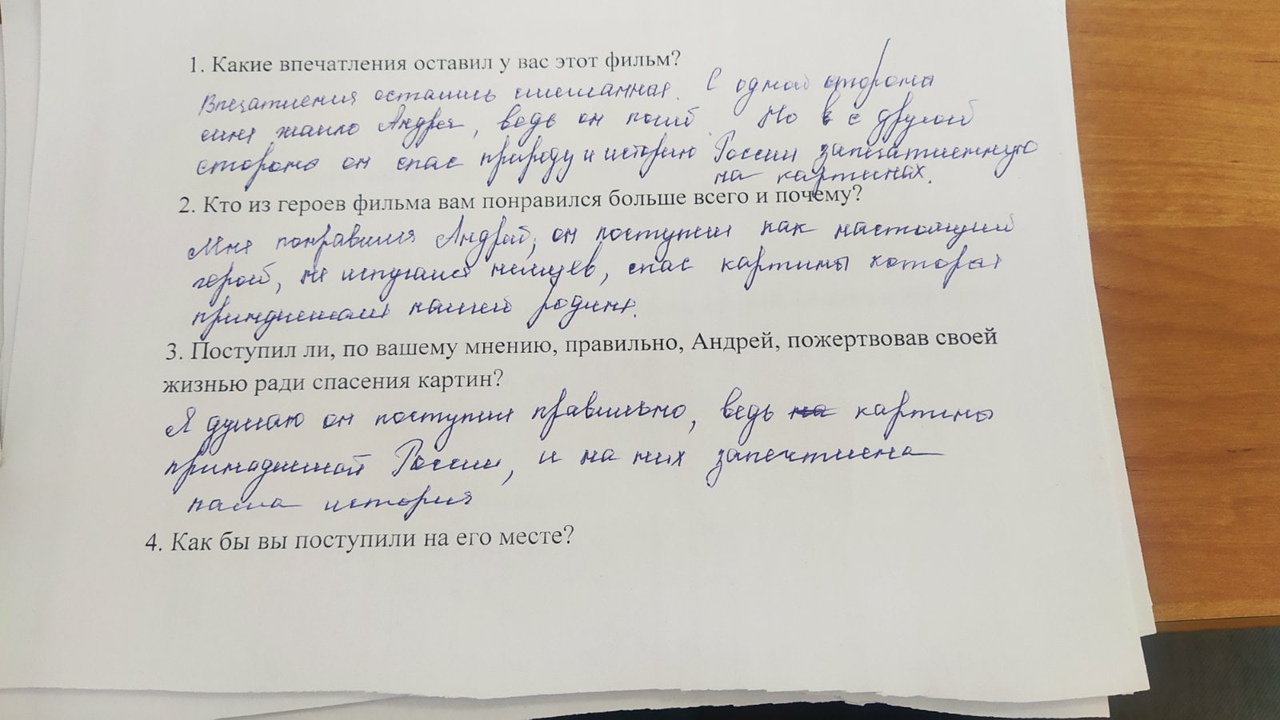 1. Какие впечатления оставил у вас этот фильм?
Впечатления остались смешанная. С одной стороны
мне жалко Андрея, ведь он погиб. Но в с другой
стороны он спас природу и историю России запечатленную
на картинах.
2. Кто из героев фильма вам понравился больше всего и почему?
Мне понравился Андрей, он поступил как настоящий
герой, не испугался немцев, спас картины которые
принадлежали нашей родине.
3. Поступил ли, по вашему мнению, правильно, Андрей, пожертвовав своей
жизнью ради спасения картин?
Я думаю он поступил правильно, ведь на картины
принадлежат России, и на них запечтлена
наша история
4. Как бы вы поступили на его месте?